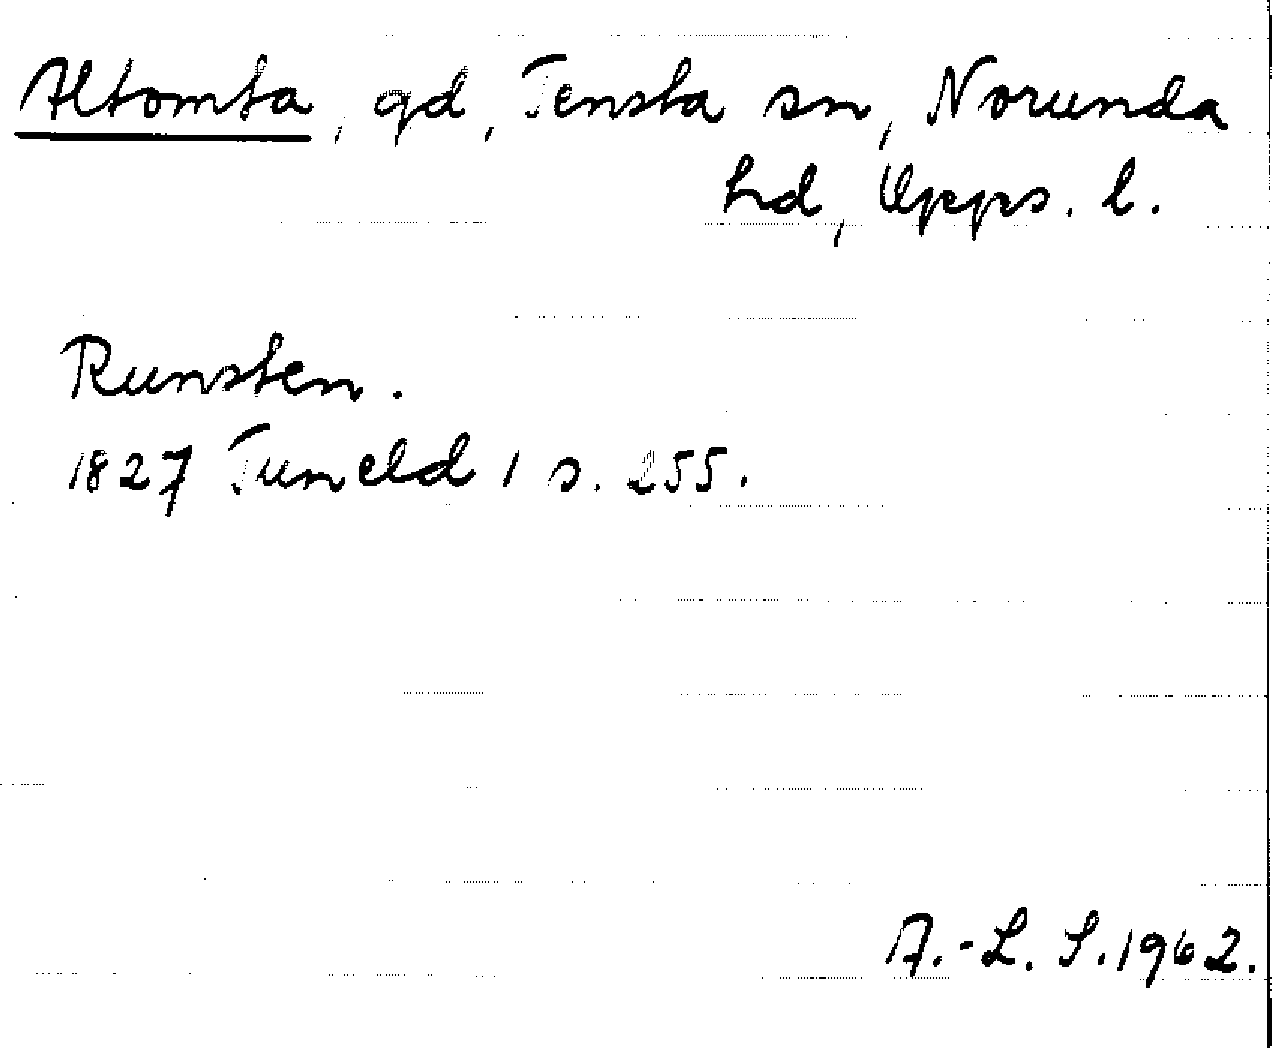 Altomta, gd, Tensta sn, Norunda
hd, Upps. l.
Runsten.
1827 Tuneld 1 s. 255.
A.-L. S. 1962.